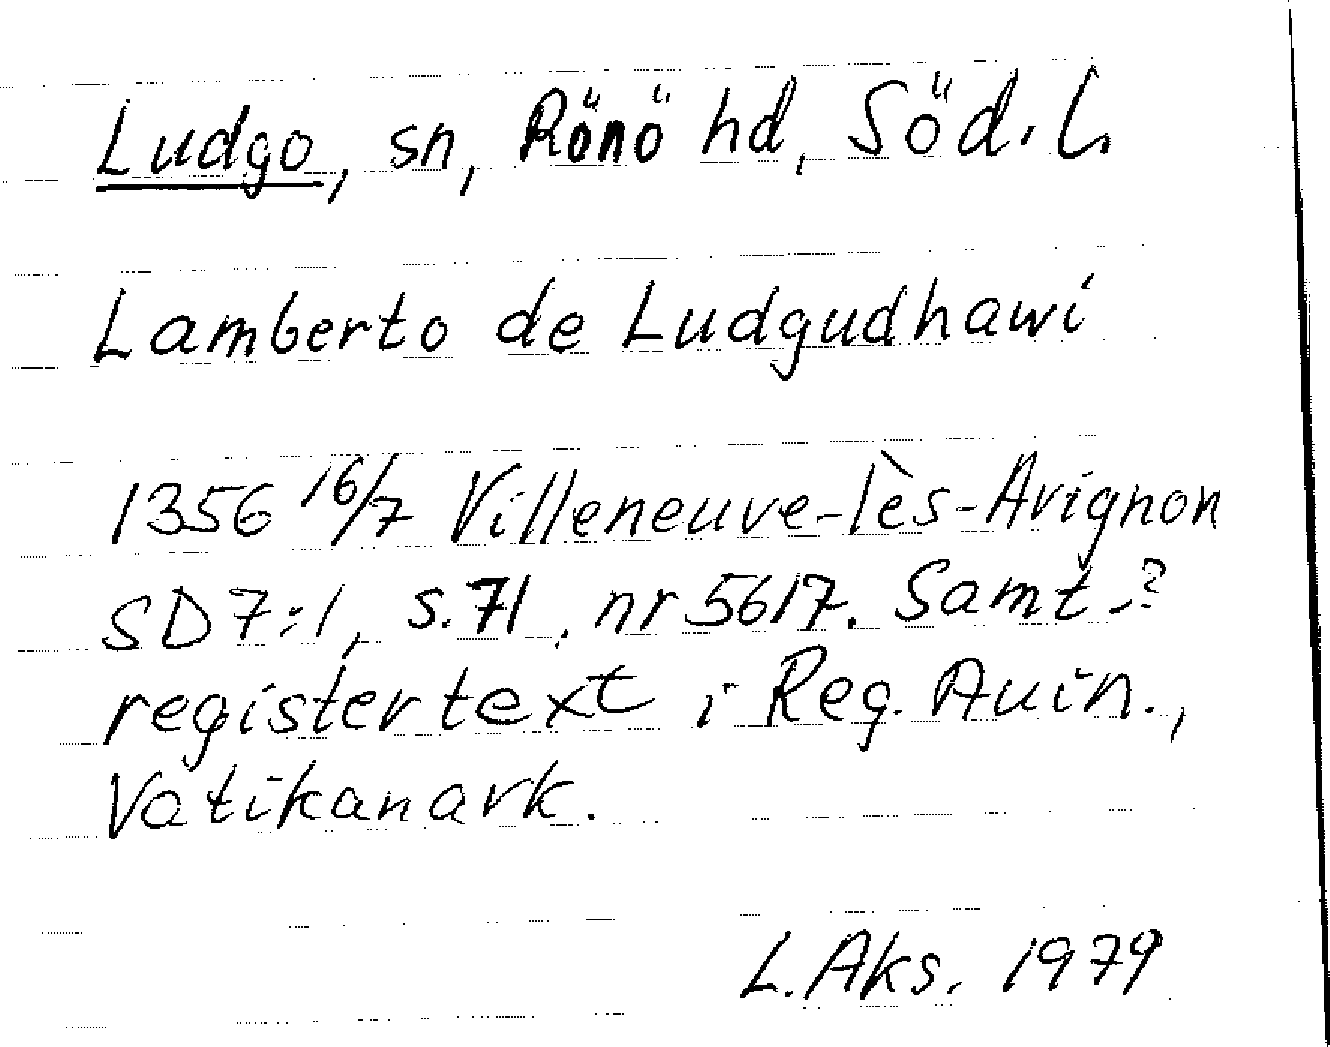 Ludgo, sn, Rönö hd, Söd. L
Lamberto de Ludgudhawi
1356 16/7 Villeneuve-lès-Avignon
SD 7:1, s. 71, nr 5617. Samt.?
registertext i Reg. Auin.,
Vatikanark.
L. Aks. 1979